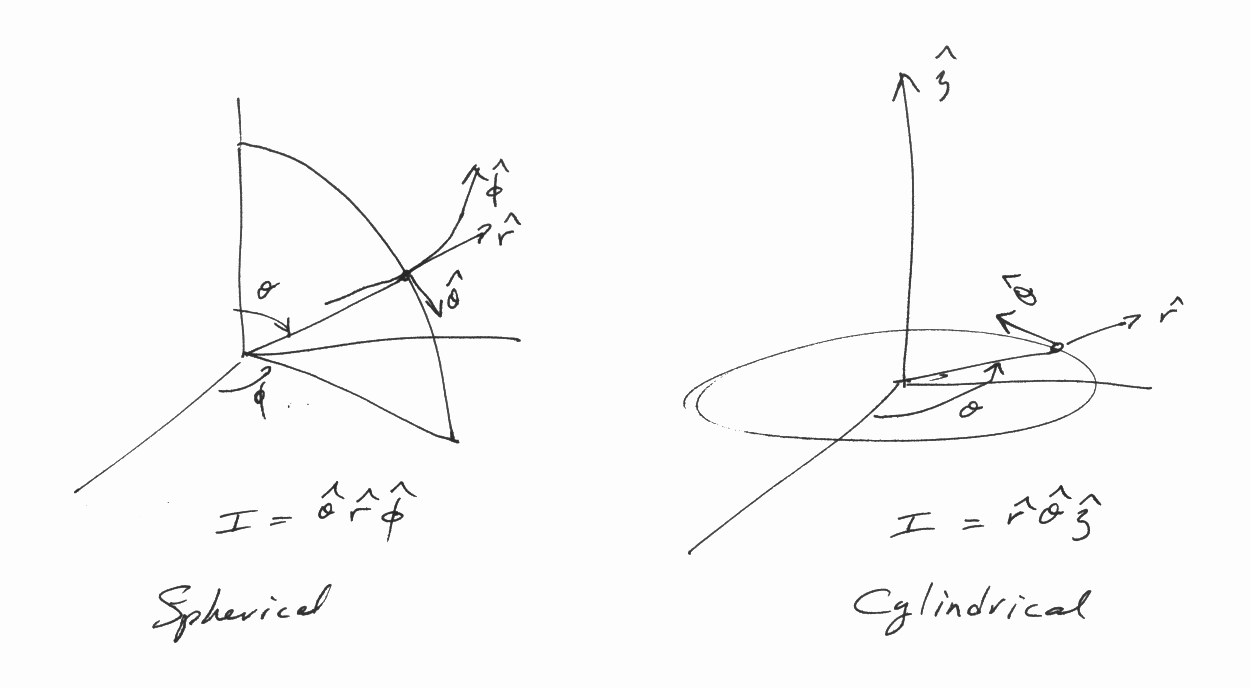 ẑ
φ̂
r̂
θ
θ̂
φ
I = θ̂ r̂ φ̂
Spherical
θ̂
r̂
θ
I = r̂ θ̂ ẑ
Cylindrical